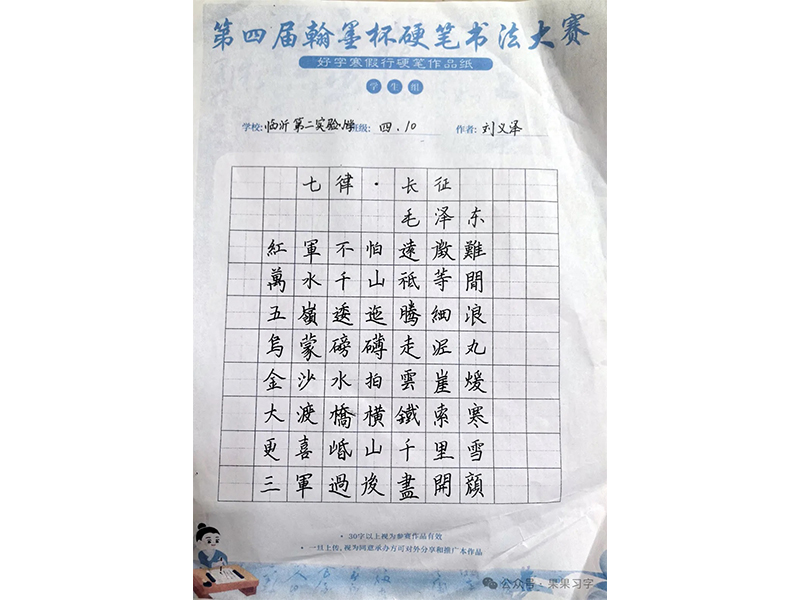 第四届翰墨杯硬笔书法大赛
好字寒假行硬笔作品纸
学生组
学校:临沂第二实验小学 班级:四.10 作者:刘义泽
七律·长征
毛泽东
紅軍不怕遠徵難
萬水千山祗等閒
五嶺逶迤騰細浪
烏蒙磅礴走泥丸
金沙水拍雲崖煖
大渡橋橫鐵索寒
更喜岷山千里雪
三軍過後盡開顔
· 30字以上视为参赛作品有效
· 一旦上传,视为同意承办方可对外分享和推广本作品
公众号·果果习字